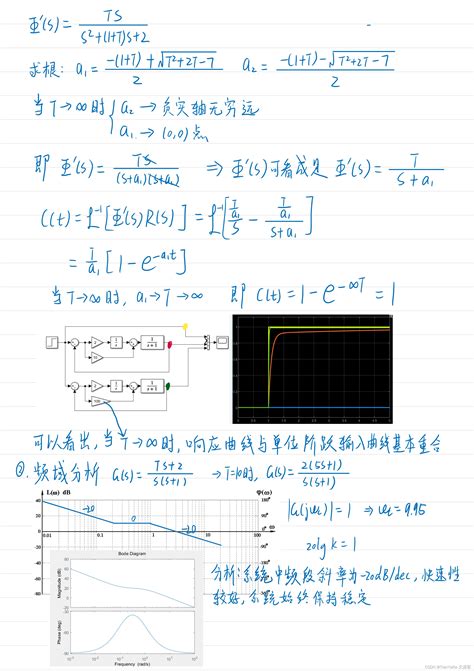 Φ'(s) = TS / (S²+(1+T)S+2)
求根: a₁ = (-(1+T)+√(T²+2T-7))/2  a₂ = (-(1+T)-√(T²+2T-7))/2
当 T→∞ 时 { a₂ → 负实轴无穷远
a₁ → (0,0)点
即 Φ'(s) = TS / ((S+a₁)(S+a₂)) ⇒ Φ'(s)可看成是 Φ'(s) = T / (S+a₁)
C(t) = L⁻¹[Φ'(s)R(s)] = L⁻¹[(T/a₁)/S - (T/a₁)/(S+a₁)]
= T/a₁ [1-e^(-a₁t)]
当 T→∞ 时, a₁→T→∞ 即 C(t) = 1-e^(-∞T) = 1
可以看出,当 T→∞时,响应曲线与单位阶跃输入曲线基本重合
②. 频域分析 G(s) = (TS+2) / (S(S+1)) → T=10时, G(s) = 2(5S+1) / (S(S+1))
L(ω) dB
φ(ω)
40
-20
180°
20
0
-20
|G(jωc)| = 1 ⇒ ωc = 9.95
0.01
0.1
1
10
100
ω
-20
20lg k = 1
-40
-60
-80
Bode Diagram
Magnitude (dB)
Phase (deg)
Frequency (rad/s)
分析:系统中频段斜率为-20dB/dec, 快速性
较好, 系统始终保持稳定